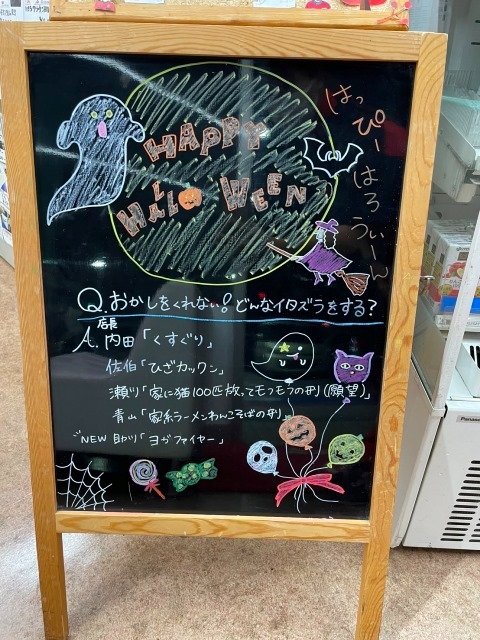 HAPPY
HALLOWEEN
はっぴーはろうぃーん
Q.おかしをくれない!どんなイタズラをする?
店長
A.内田「くすぐり」
佐伯「ひざカックン」
瀬川「家に猫100匹放ってモフモフの刑(願望)
青山「家系ラーメンわんこそばの刑」
NEW 助川「ヨガファイヤー」
Panasonic